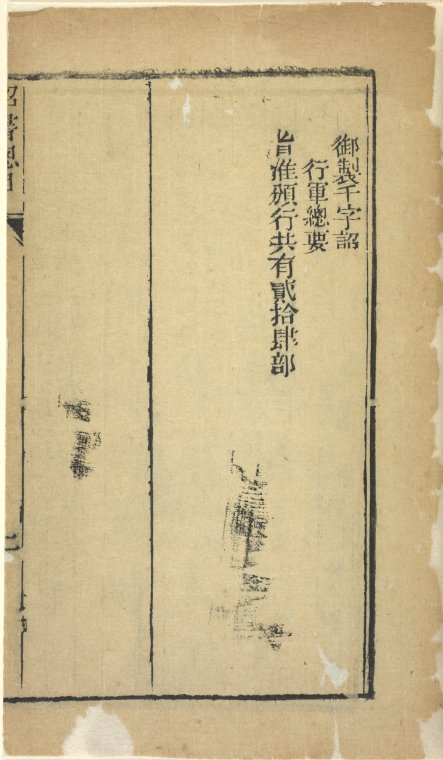 御製千字詔
行軍總要
旨准頒行共有貳拾肆部
詔書總目